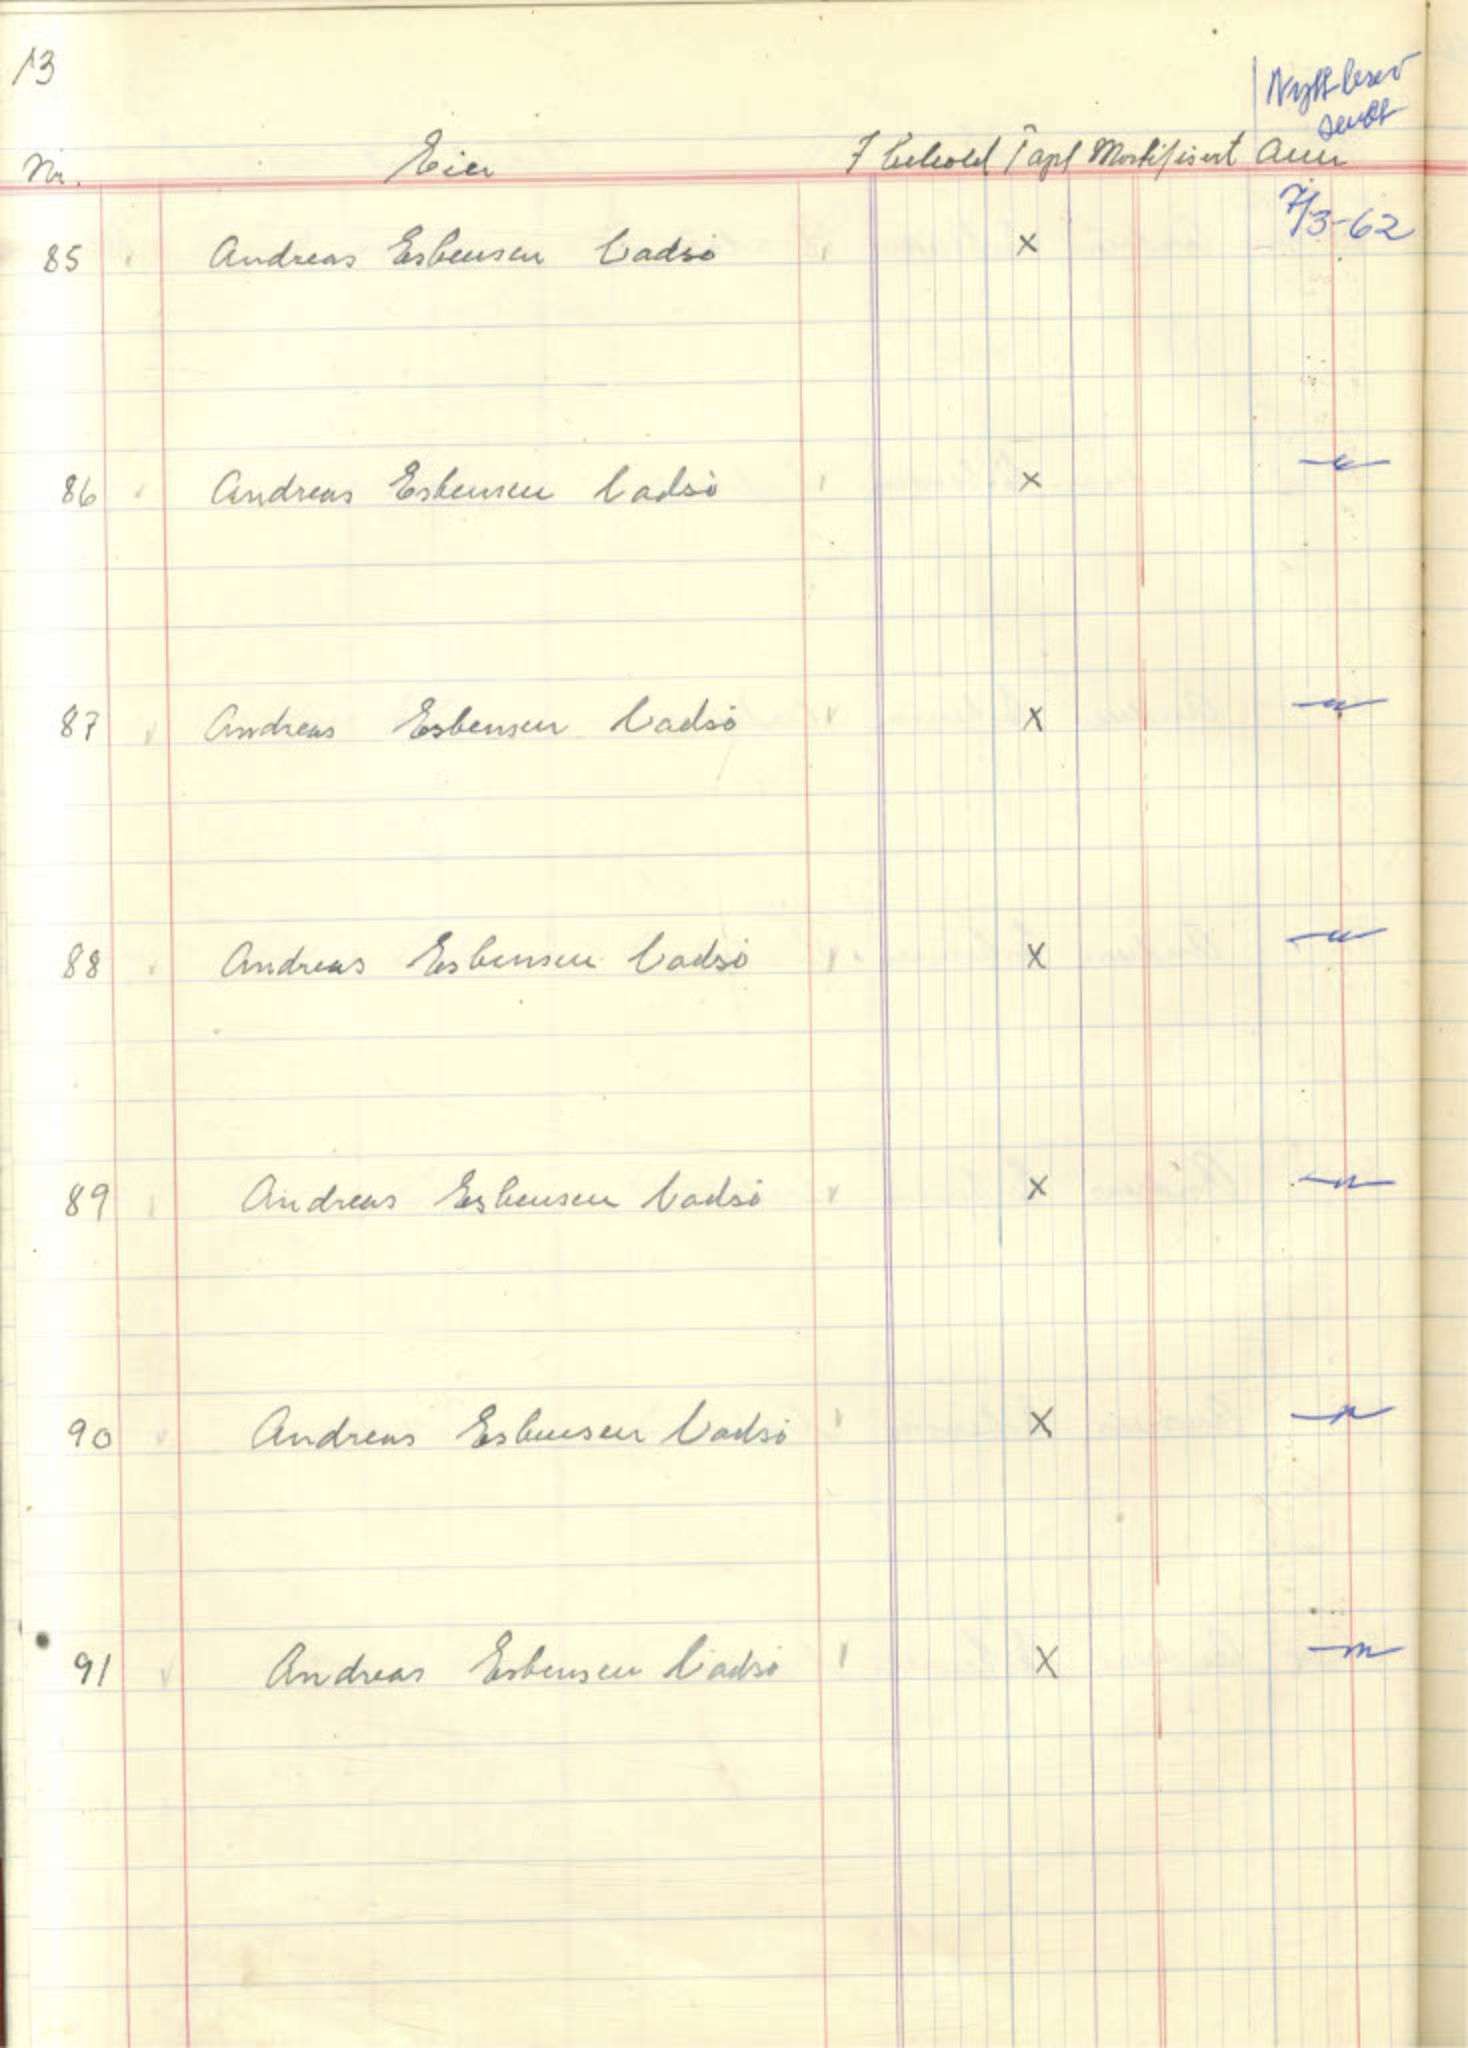 13
Nytt bevis
sendt
Nr. Eier I behold Tapt Mortifisert Anm
7/3-62
85 Andreas Esbensen Vadsö X
86 Andreas Esbensen Vadsö X —"—
87 Andreas Esbensen Vadsö X —"—
88 Andreas Esbensen Vadsö X —"—
89 Andreas Esbensen Vadsö X —"—
90 Andreas Esbensen Vadsö X —"—
91 Andreas Esbensen Vadsö X —"—